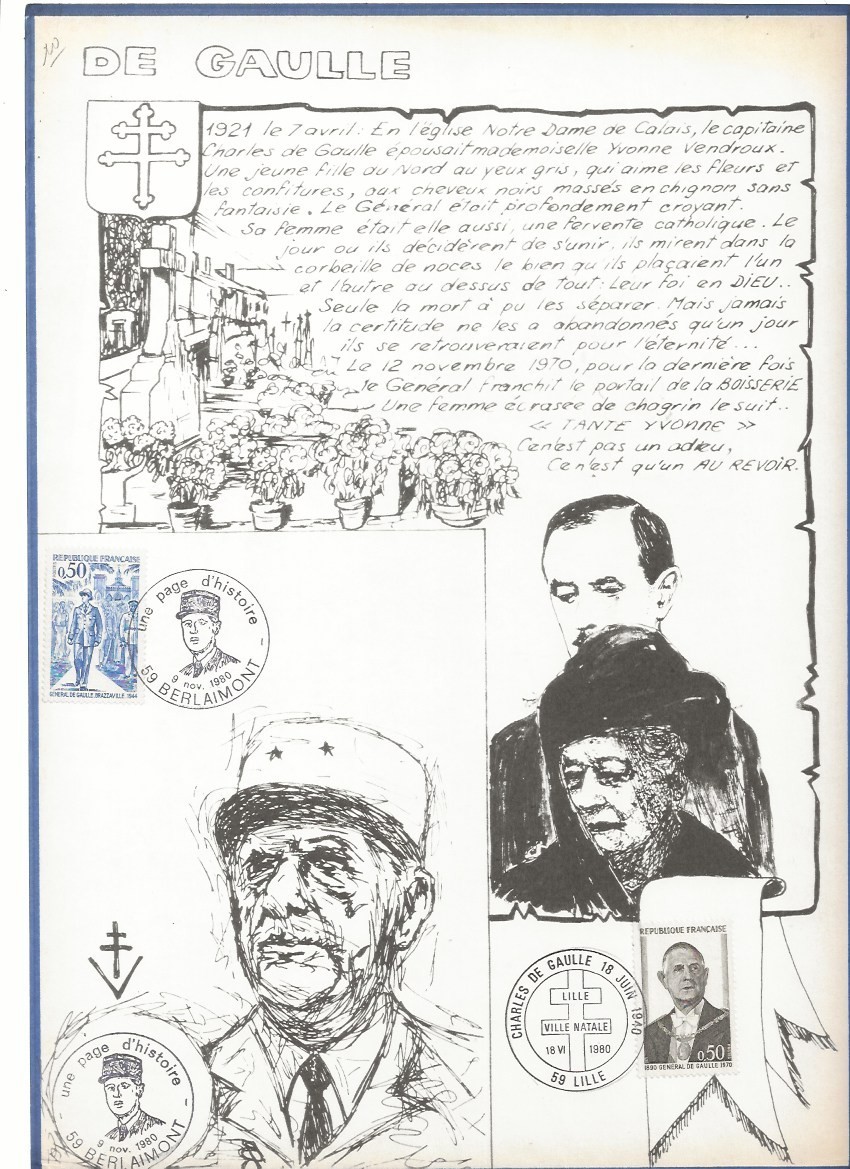 DE GAULLE
1921 le 7 avril: En l'église Notre Dame de Calais, le capitaine
Charles de Gaulle épousait mademoiselle Yvonne Vendroux.
Une jeune fille du Nord au yeux gris, qui aime les fleurs et
les confitures, aux cheveux noirs massés en chignon sans
fantaisie. Le Général était profondement croyant.
Sa femme était elle aussi, une fervente catholique. Le
jour ou ils décidèrent de s'unir, ils mirent dans la
corbeille de noces le bien qu'ils plaçaient l'un
et l'autre au dessus de tout: Leur foi en DIEU..
Seule la mort à pu les séparer. Mais jamais
la certitude ne les a abandonnés qu'un jour
ils se retrouveraient pour l'éternité...
Le 12 novembre 1970, pour la dernière fois
le Général franchit le portail de la BOISSERIE
Une femme écrasée de chagrin le suit..
« TANTE YVONNE »
Ce n'est pas un adieu,
Ce n'est qu'un AU REVOIR.
REPUBLIQUE FRANÇAISE
0,50
GENERAL DE GAULLE BRAZZAVILLE 1944
une page d'histoire
9 nov. 1980
59 BERLAIMONT
REPUBLIQUE FRANÇAISE
0,50
1890 GENERAL DE GAULLE 1970
CHARLES DE GAULLE 18 JUIN 1940
LILLE
VILLE NATALE
18 VI 1980
59 LILLE
une page d'histoire
9 nov. 1980
59 BERLAIMONT